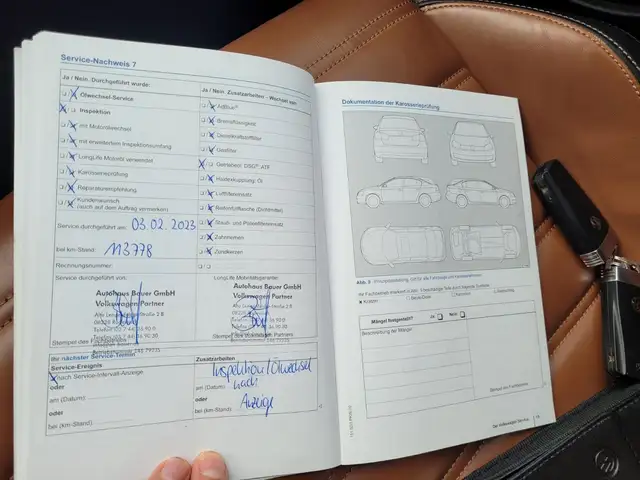 Service-Nachweis 7
Ja / Nein. Durchgeführt wurde:
Ölwechsel-Service
Inspektion
mit Motorölwechsel
mit erweitertem Inspektionsumfang
LongLife Motoröl verwendet
Karosserieprüfung
Reparaturempfehlung
Kundenwunsch
(auch auf dem Auftrag vermerken)
Service durchgeführt am: 03.02.2023
bei km-Stand: 113778
Rechnungsnummer:
Service durchgeführt von:
Autohaus Bauer GmbH
Volkswagen Partner
Ja / Nein. Zusatzarbeiten – Wechsel von:
AdBlue®
Bremsflüssigkeit
Dieselkraftstofffilter
Getriebeöl: DSG®, ATF
Haldexkupplung: Öl
Luftfiltereinsatz
Reifendichtmasche (Dichtmittel)
Staub- und Pollenfiltereinsatz
Zahnriemen
Zündkerzen
LongLife Mobilitätsgarantie:
Autohaus Bauer GmbH
Volkswagen Partner
Stempel des Volkswagen Partners
Ihr nächster Service-Termin
Service-Ereignis
nach Service-Intervall-Anzeige
oder
am (Datum)
oder
bei (km-Stand)
Zusatzarbeiten
Inspektion/Ölwechsel
nach
am (Datum)
oder
Anzeige
bei (km-Stand)
Dokumentation der Karosserieprüfung
Mängel festgestellt? Ja Nein
Beschreibung der Mängel
Der Volkswagen Service